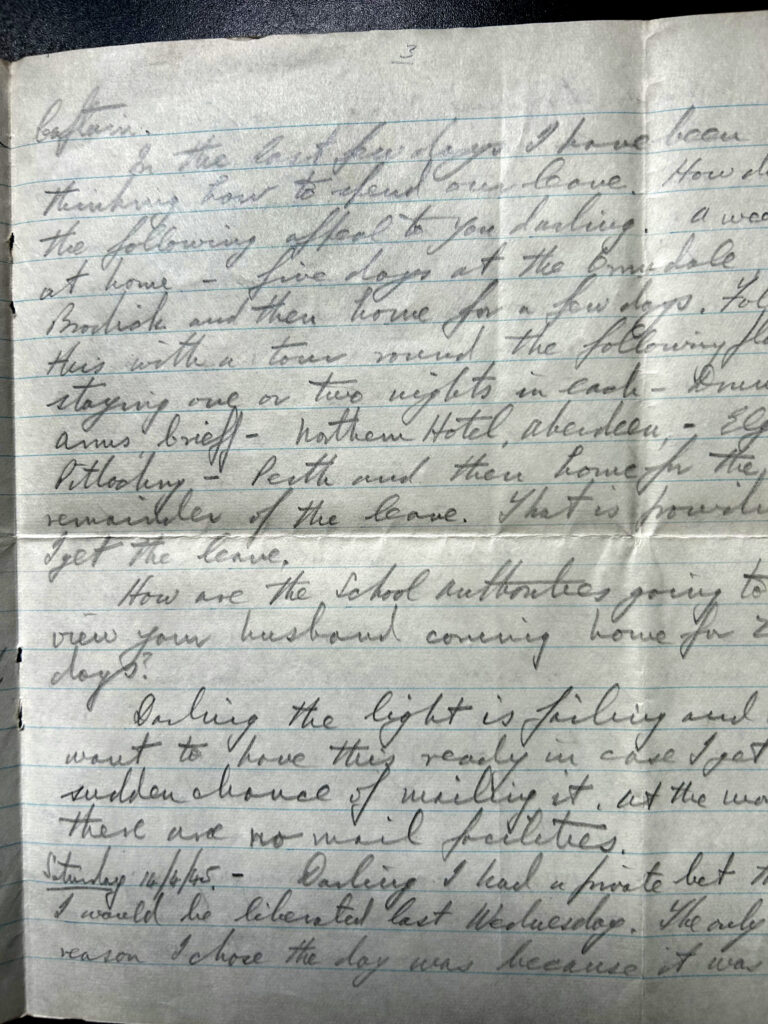 3
Captain.
In the last few days I have been
thinking how to spend our leave. How d
the following appeal to you darling. A wee
at home - five days at the Ormidale
Brodick and then home for a few days. Fol
this with a tour round the following pla
staying one or two nights in each - Drum
arms, Crieff - Northern Hotel, Aberdeen, - Elg
Pitlochry - Perth and then home for the
remainder of the leave. That is providi
I get the leave.
How are the School authorities going to
view your husband coming home for 2
days?
Darling the light is failing and
want to have this ready in case I get
sudden chance of mailing it. At the mo
there are no mail facilities.
Saturday 14/4/45. - Darling I had a private bet th
I would be liberated last Wednesday. The only
reason I chose the day was because it was